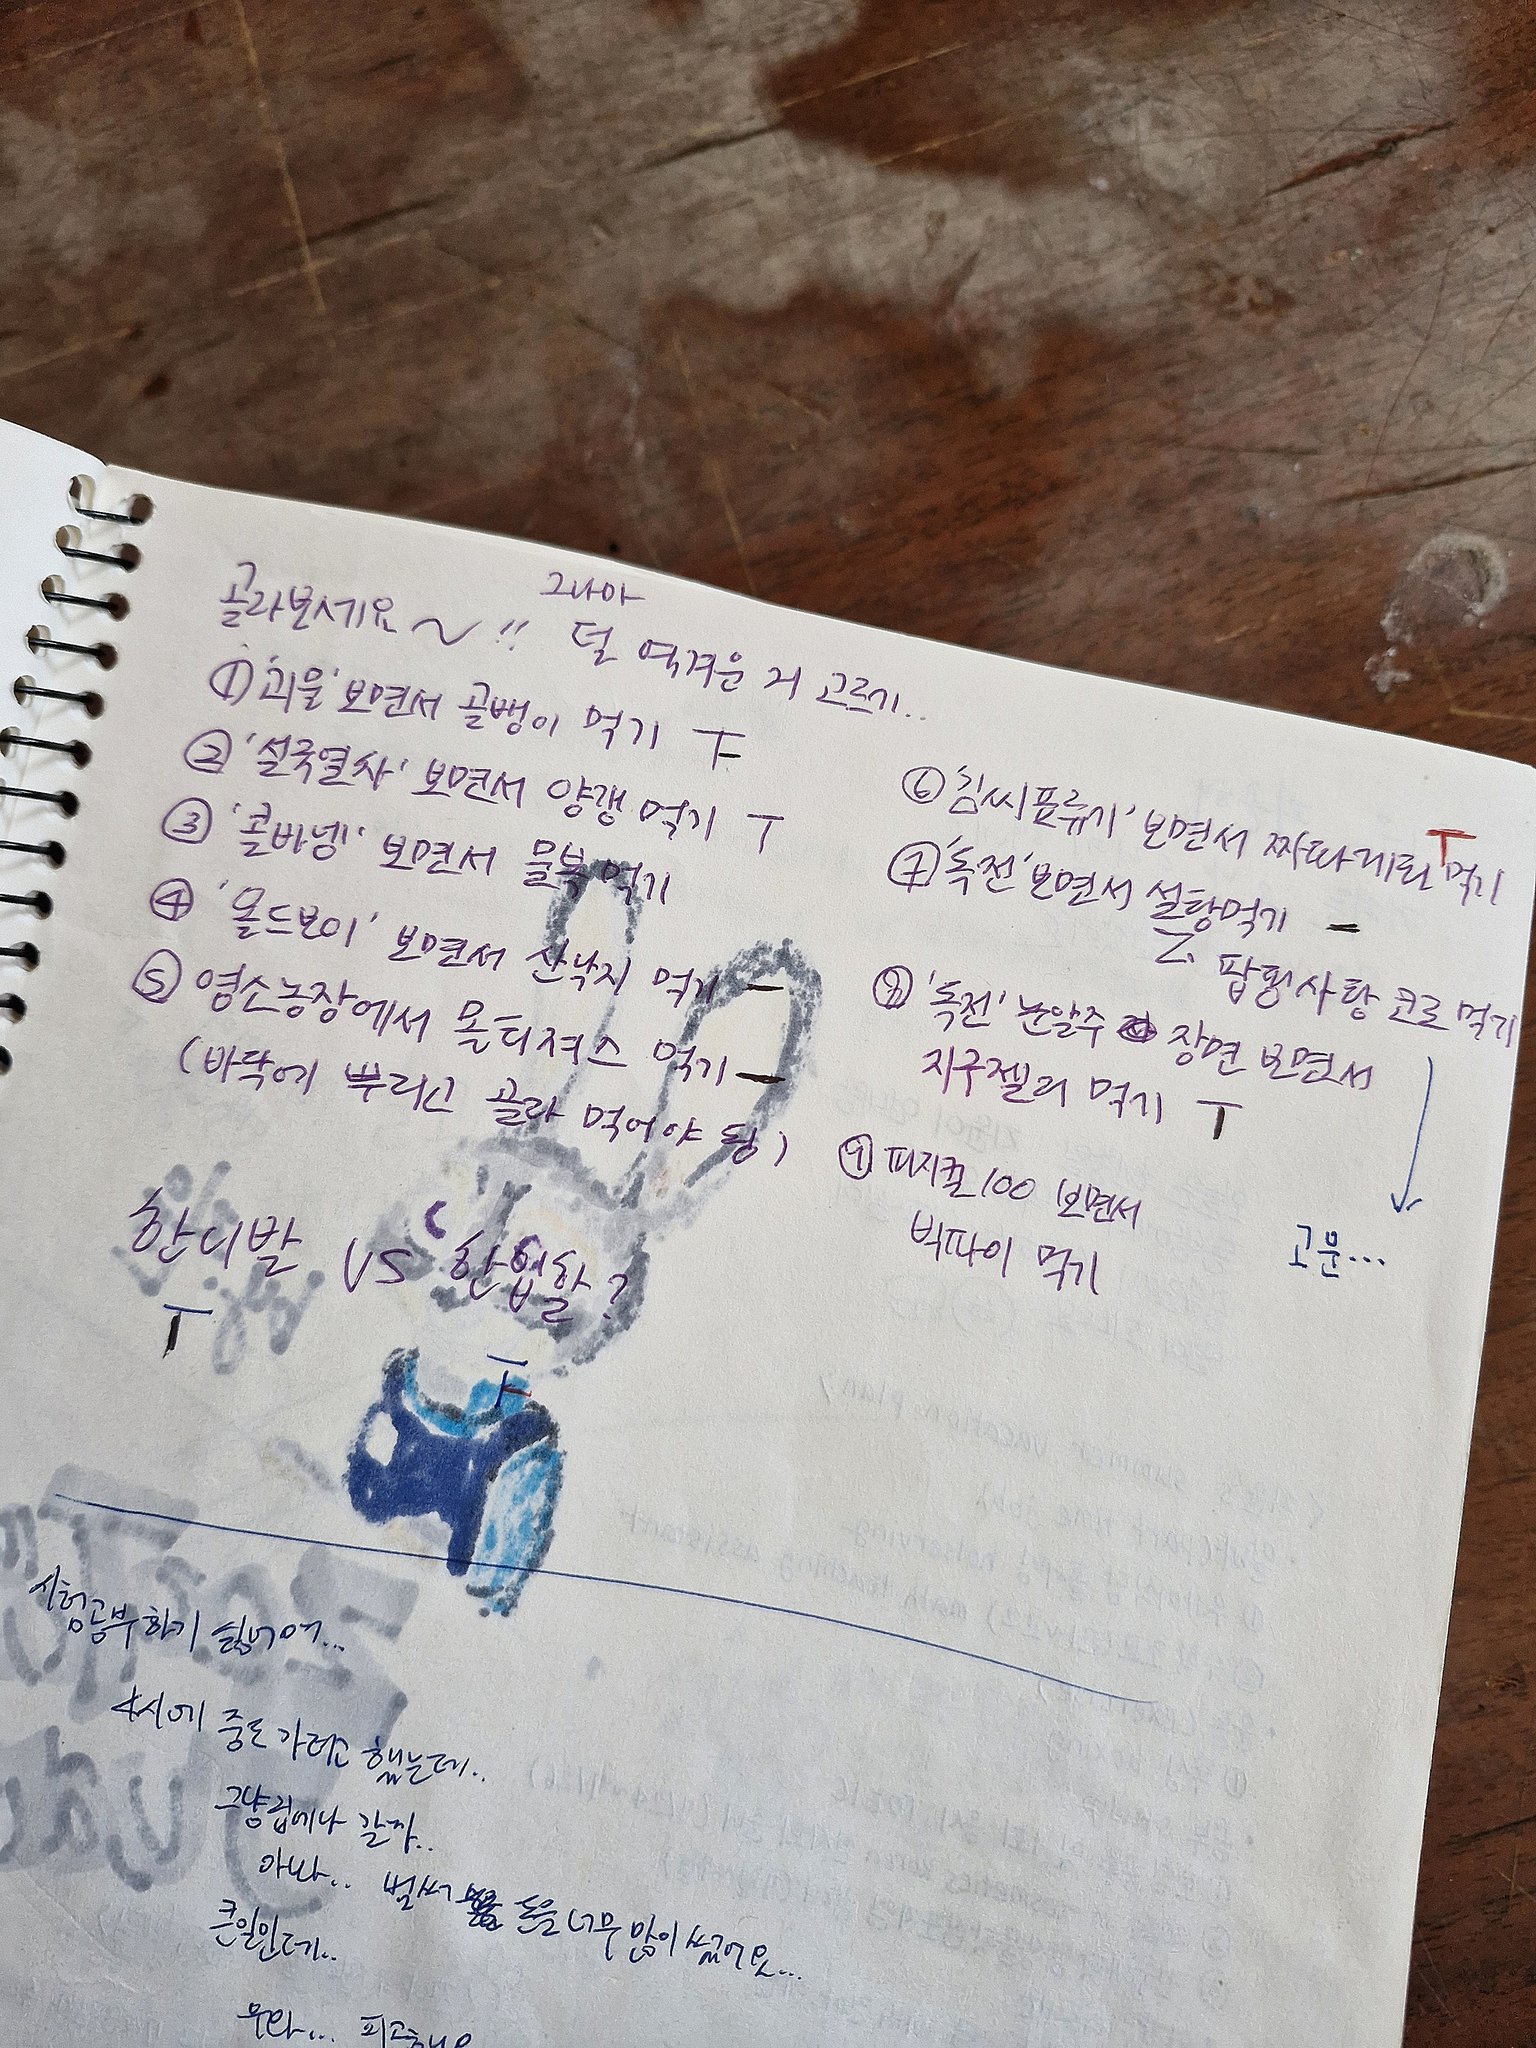 골라보세요~!! 그나마 덜 역겨운 거 고르기..
① '괴물' 보면서 골뱅이 먹기
② '설국열차' 보면서 양갱 먹기
③ '콜바넴' 보면서 물복 먹기
④ '올드보이' 보면서 산낙지 먹기
⑤ 염소농장에서 몰티져스 먹기
(바닥에 뿌리고 골라 먹어야 됨)
⑥ '김씨표류기' 보면서 짜파게티 먹기
⑦ '독전' 보면서 설탕먹기
팝핑사탕 코로 먹기
⑧ '독전' 눈알주 장면 보면서
지구젤리 먹기
⑨ 피지컬100 보면서
빅파이 먹기
고문...
한니발 VS 한입할?
시험공부하기 싫어여...
4시에 중도 가려고 했는데..
그냥 집에나 갈까..
아빠.. 벌써 돈을 너무 많이 썼어요...
큰일인데..